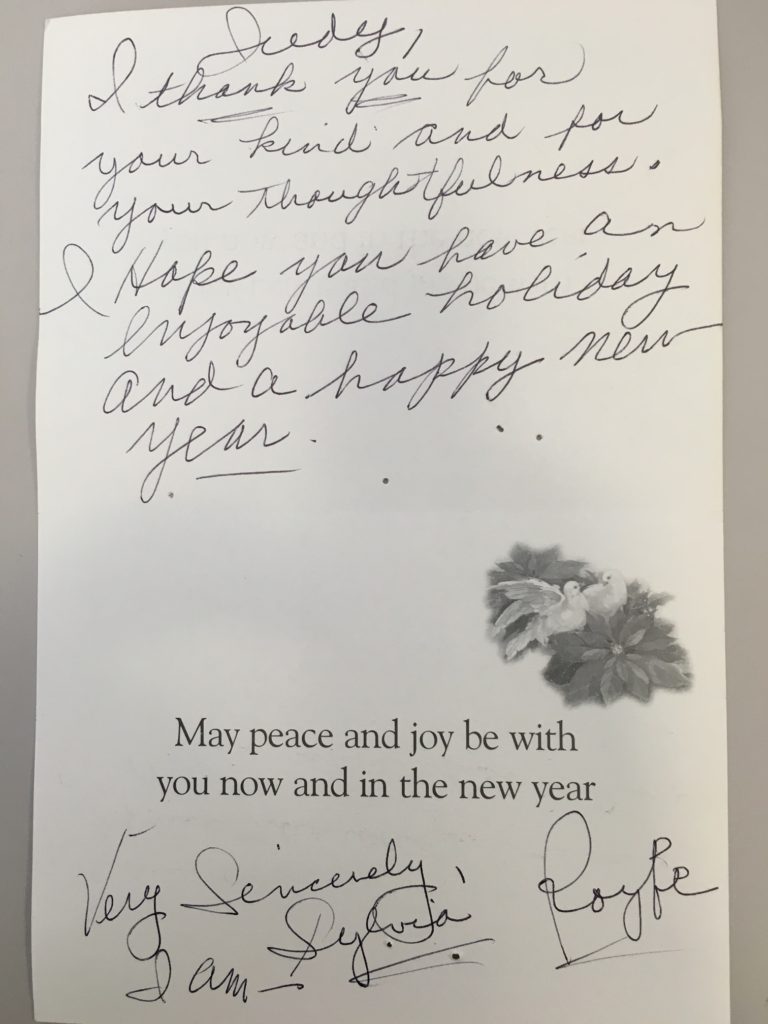 Judy,
I thank you for
your kind and for
your thoughtfulness.
I Hope you have an
enjoyable holiday
and a happy new
year.
May peace and joy be with
you now and in the new year
Very Sincerely,
I am - Sylvia